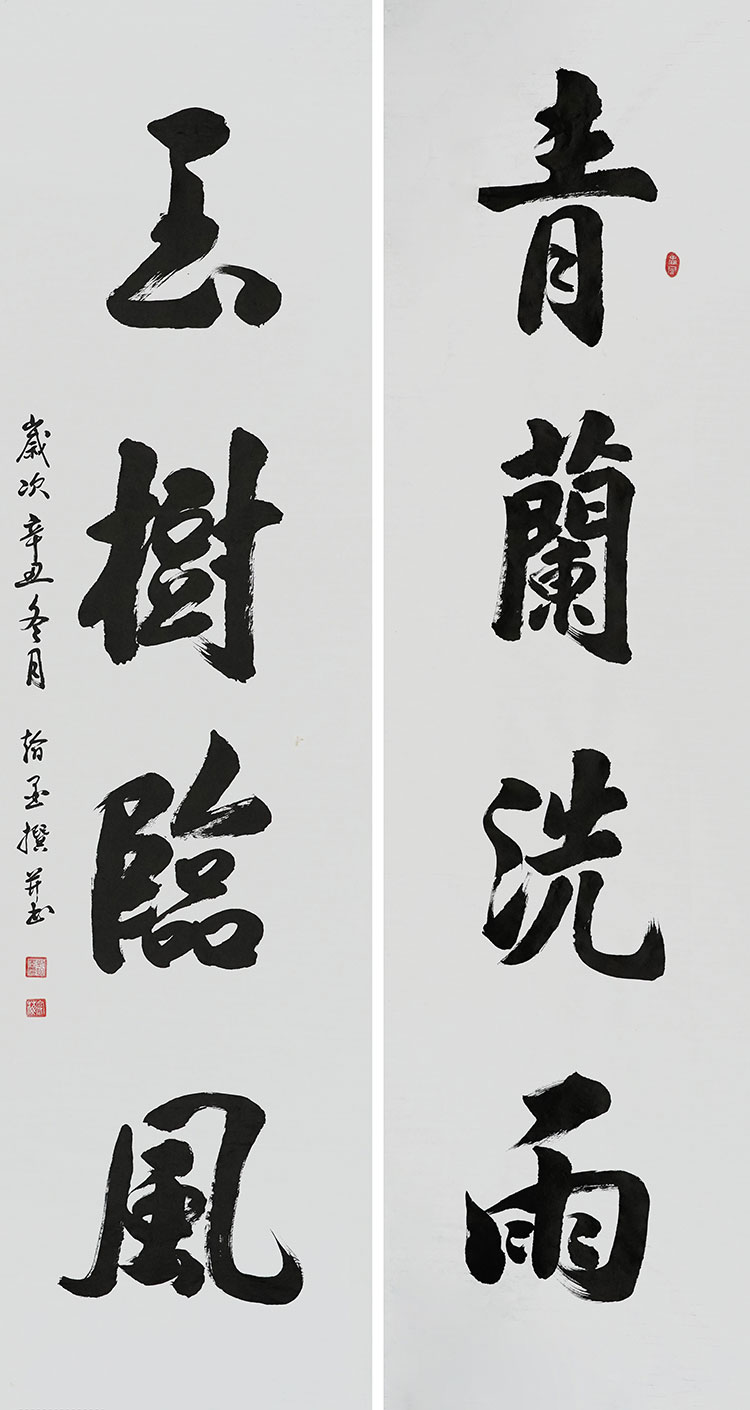 青蘭洗雨
玉樹臨風
歲次辛丑冬月 翰墨撰并書